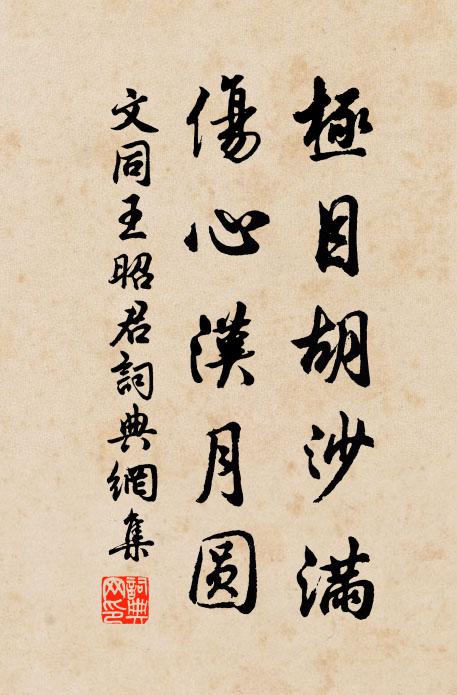 極目胡沙滿
傷心漢月圆
文同王昭君詞典網集
詞典網印